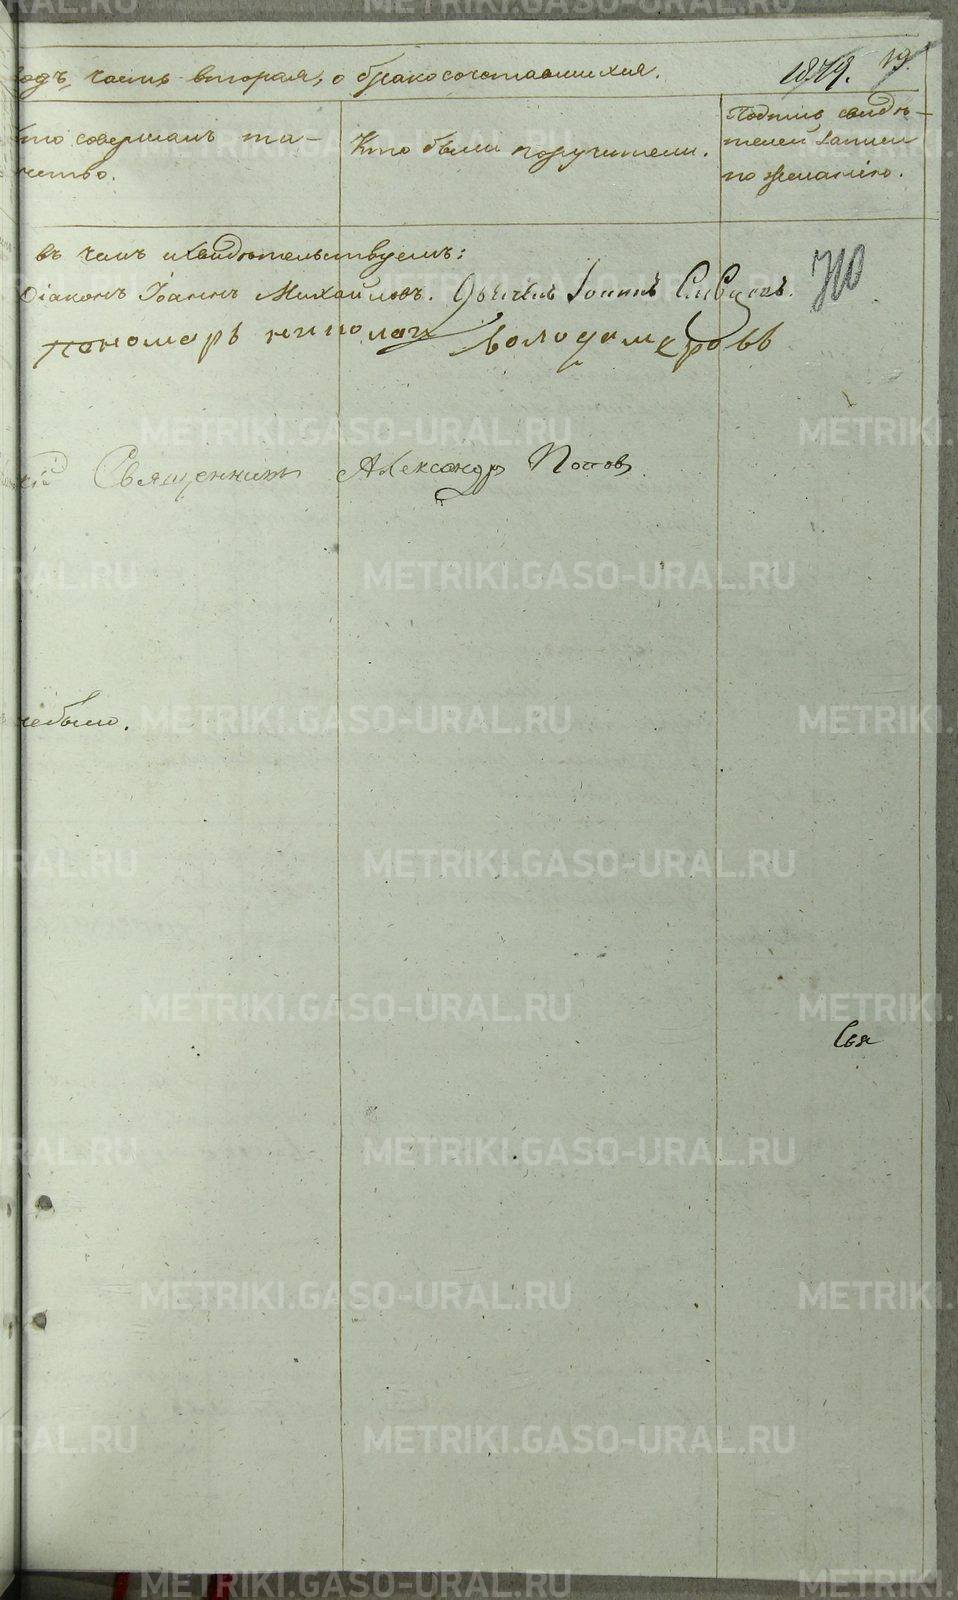 одъ, часть вторая, о бракосочетавшихся. 1879. 19.
то совершалъ та-
инство.
Кто были поручители.
Подпись свидѣ-
телей записи
по желанію.
въ чемъ и свидѣтельствуемъ:
Діаконъ Іоаннъ Михайловъ. Дьячекъ Іоаннъ
Пономарь николай
Священникъ Александръ Попов
небыло.
Свя
METRIKI.GASO-URAL.RU